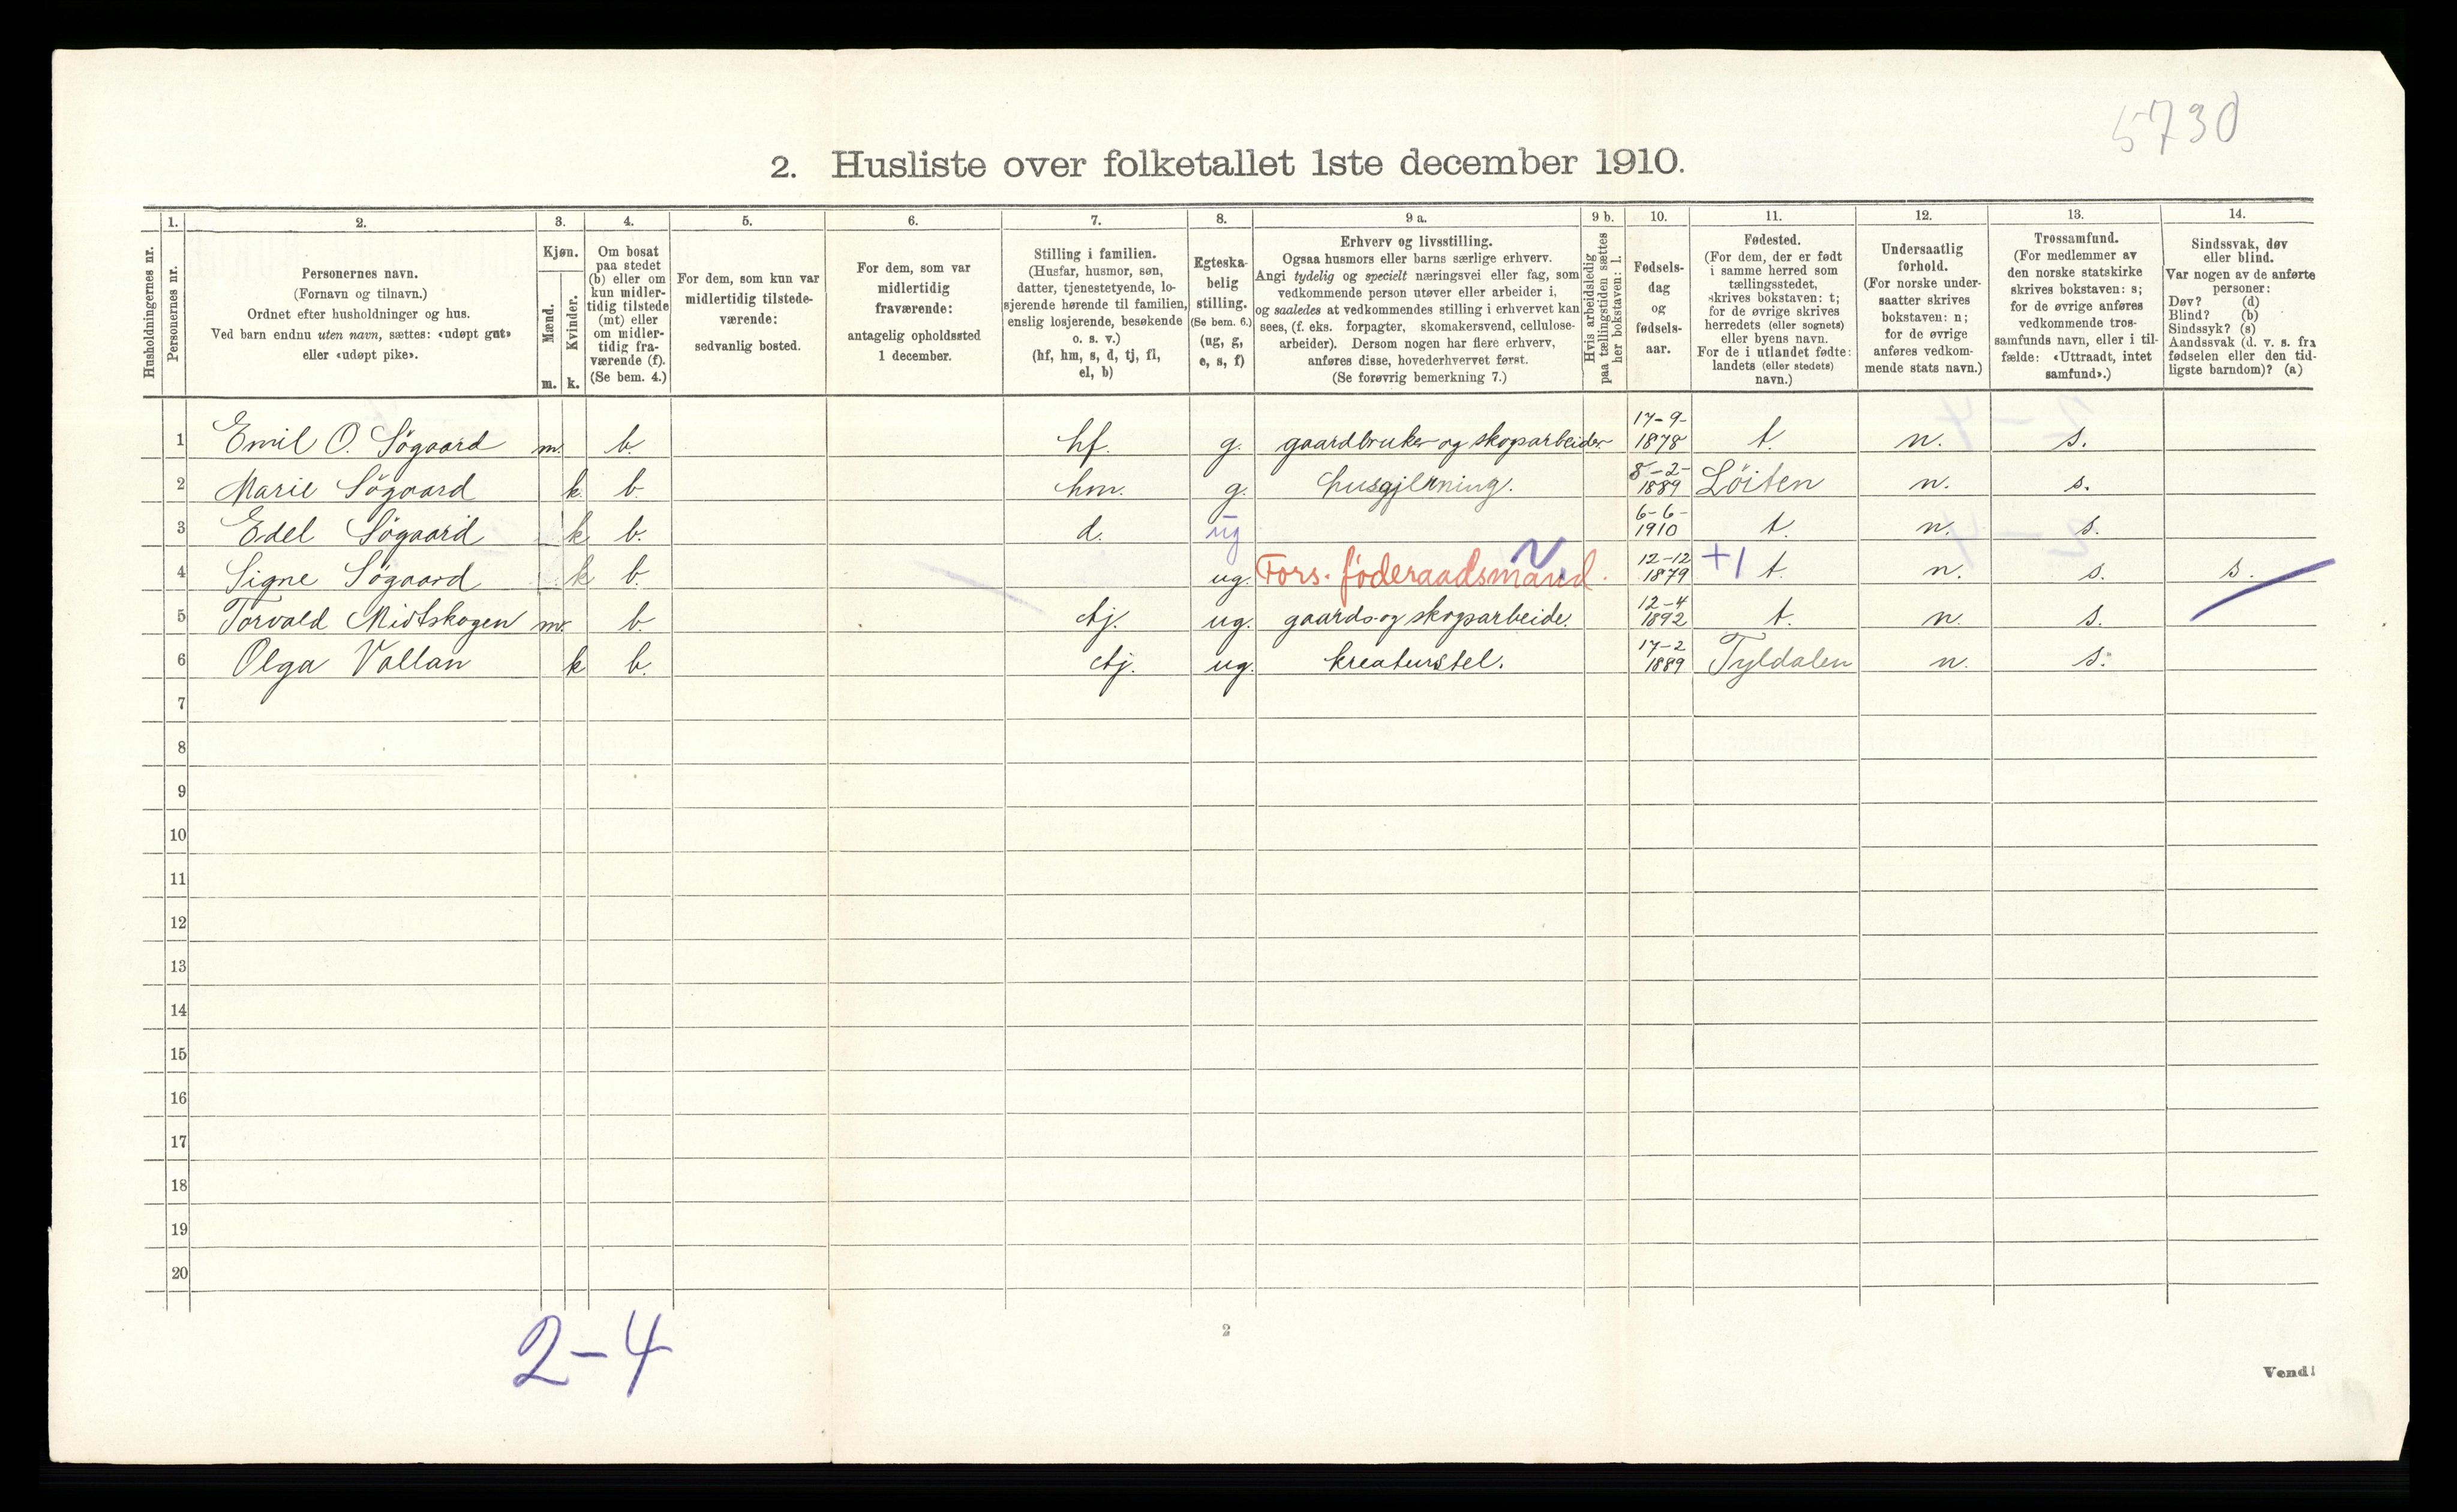 5730
2. Husliste over folketallet 1ste december 1910.
Husholdningernes nr.
1.
Personernes nr.
2.
Personernes navn.
(Fornavn og tilnavn.)
Ordnet efter husholdninger og hus.
Ved barn endnu uten navn, sættes: «udøpt gut»
eller «udøpt pike».
3.
Kjøn.
Mænd.
m.
Kvinder.
k.
4.
Om bosat
paa stedet
(b) eller om
kun midler-
tidig tilstede
(mt) eller
om midler-
tidig fra-
værende (f).
(Se bem. 4.)
5.
For dem, som kun var
midlertidig tilstede-
værende:
sedvanlig bosted.
6.
For dem, som var
midlertidig
fraværende:
antagelig opholdssted
1 december.
7.
Stilling i familien.
(Husfar, husmor, søn,
datter, tjenestetyende, lo-
sjerende hørende til familien,
enslig losjerende, besøkende
o. s. v.)
(hf, hm, s, d, tj, fl,
el, b)
8.
Egteska-
belig
stilling.
(Se bem. 6.)
(ug, g,
e, s, f)
9 a.
Erhverv og livsstilling.
Ogsaa husmors eller barns særlige erhverv.
Angi tydelig og specielt næringsvei eller fag, som
vedkommende person utøver eller arbeider i,
og saaledes at vedkommendes stilling i erhvervet kan
sees, (f. eks. forpagter, skomakersvend, cellulose-
arbeider). Dersom nogen har flere erhverv,
anføres disse, hovederhvervet først.
(Se forøvrig bemerkning 7.)
9 b.
Hvis arbeidsledig
paa tællingstiden sættes
her bokstaven: l.
10.
Fødsels-
dag
og
fødsels-
aar.
11.
Fødested.
(For dem, der er født
i samme herred som
tællingsstedet,
skrives bokstaven: t;
for de øvrige skrives
herredets (eller sognets)
eller byens navn.
For de i utlandet fødte:
landets (eller stedets)
navn.)
12.
Undersaatlig
forhold.
(For norske under-
saatter skrives
bokstaven: n;
for de øvrige
anføres vedkom-
mende stats navn.)
13.
Trossamfund.
(For medlemmer av
den norske statskirke
skrives bokstaven: s;
for de øvrige anføres
vedkommende tros-
samfunds navn, eller i til-
fælde: «Uttraadt, intet
samfund».)
14.
Sindssvak, døv
eller blind.
Var nogen av de anførte
personer:
Døv? (d)
Blind? (b)
Sindssyk? (s)
Aandssvak (d. v. s. fra
fødselen eller den tid-
ligste barndom)? (a)
1 Emil O. Søgaard m. b. hf. g. gaardbruker og skogsarbeider 17-9-1878 t. n. s.
2 Marie Søgaard k. b. hm. g. husgjerning. 8-2-1889 Löiten n. s.
3 Edel Søgaard k b. d. ug 6-6-1910 t. n. s.
4 Signe Søgaard k b. ug. Fors. føderaadsmand. N. 12-12 1879 +1 t. n. s. s.
5 Torvald Midtskogen m. b. tj. ug. gaards- og skogsarbeide. 12-4 1892 t. n. s.
6 Olga Vollan k b. tj. ug. kreaturstel. 17-2 1889 Tyldalen n. s.
7
8
9
10
11
12
13
14
15
16
17
18
19
20
2-4
2
Vend!